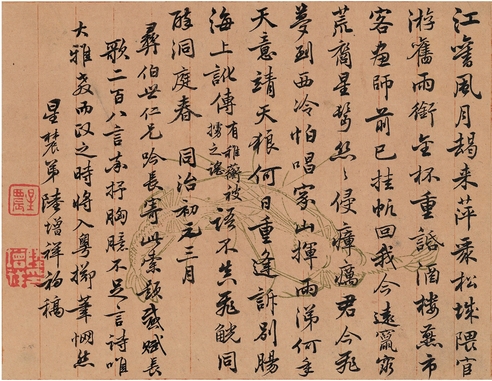 風月來萍聚松隈官
游舊雨銜金杯重話酒樓燕市
客畫師前已挂帆回我今遠竄窮
荒裔星侵瘴癘君今飛
夢到西泠怕唱家山揮雨涕何年
天意靖天狼何日重逢訴別腸
海上訛傳有雅衡被擄之謠語不真飛觥同
醉洞庭春 同治初元三月
彝伯世仁兄吟長寄此索題感賦長
歌二百八言率抒胸臆不足言詩唯
大雅教而政之時将入粵擲筆惘然
星農弟陸增祥初稿
星農